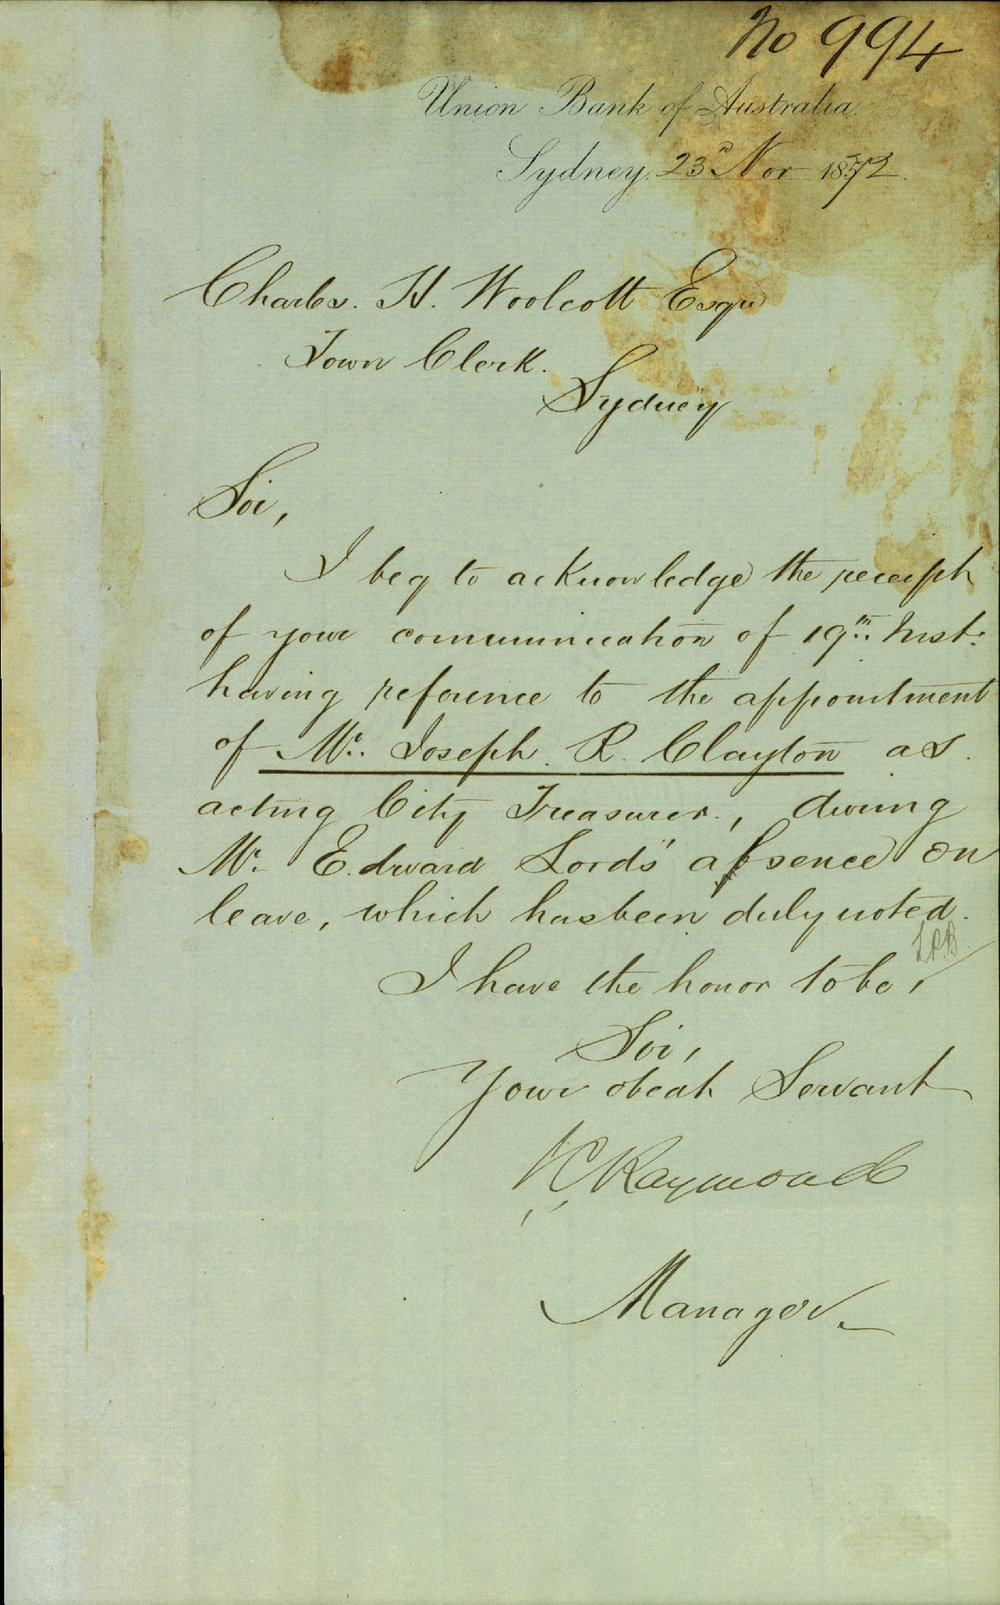 No 994
Union Bank of Australia.
Sydney. 23rd Nov 1872.
Charles. H. Woolcott Esqre
Town Clerk.
Sydney
Sir,
I beg to acknowledge the receipt
of your communication of 19th Inst:
having reference to the appointment
of Mr. Joseph. R. Clayton as
acting City Treasurer., during
Mr. Edward Lord's absence on
leave, which has been duly noted.
I have the honor to be,
Sir,
Your obedt Servant
Raymond
Manager.